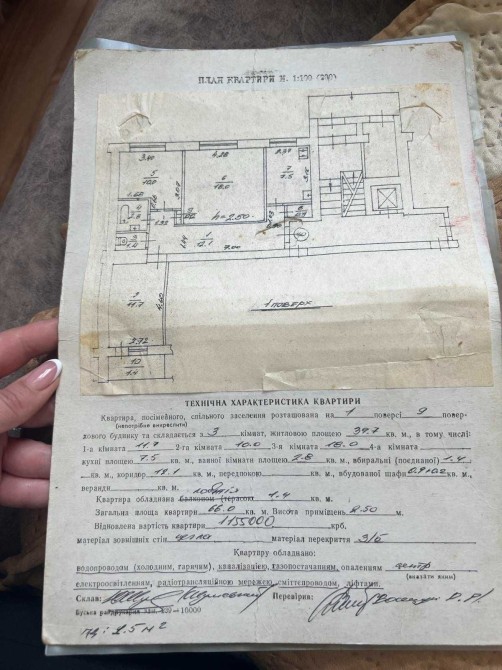 ПЛАН КВАРТИРИ N. 1:100 (200)
3.40
4.28
2.40
5
10.0
6
18.0
7
7.5
h=2.50
1
13.1
7.00
9
11.7
3.72
10
1.4
1 поверх
ТЕХНІЧНА ХАРАКТЕРИСТИКА КВАРТИРИ
Квартира, посімейного, спільного заселення розташована на 1 поверсі 9 повер-
(непотрібне викреслити)
дового будинку та складається з 3 кімнат, житловою площею 39,7 кв. м., в тому числі:
1-а кімната 11.7 2-га кімната 10.0 3-я кімната 18.0 4-а кімната
кухні площею 7.5 кв. м., ванної кімнати площею 2.8 кв. м., вбиральні (поєднаної) 1.4
кв. м., коридор 13.1 кв. м., передпокою кв. м., вбудованої шафи 0.9+0.2 кв. м.,
веранди кв. м. лоджія
Квартира обладнана балконом (терасою) 1.4 кв. м.
Загальна площа квартири 66.0 кв. м. Висота приміщень 2.50 м.
Відновлена вартість квартири 1155000 крб,
матеріал зовнішніх стін цегла матеріал перекриття з/б
Квартиру обладнано:
водопроводом (холодним, гарячим), каналізацією, газопостачанням, опаленням центр
(вказати яким)
електроосвітленням, радіотрансляційною мережею, сміттєпроводом, ліфтами.
Склав: Перевірив:
10000
пд = 2.5 м2